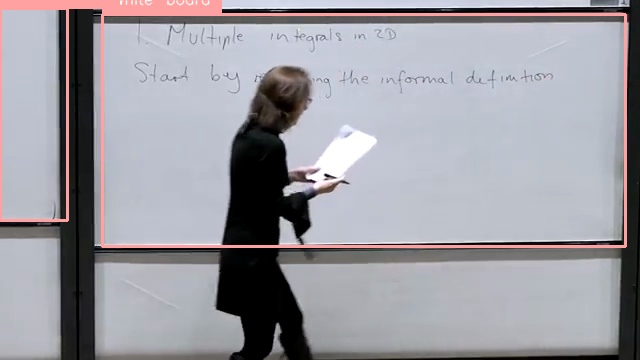 white board
1. Multiple integrals in 2D
Start by the informal definition